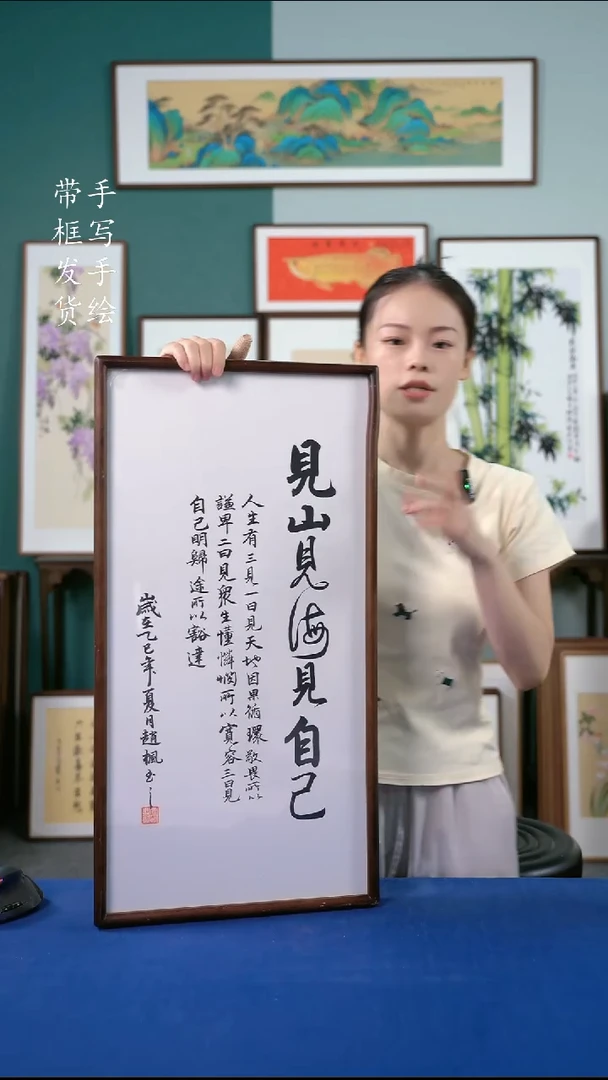 手写手绘
带框发货
見山見海見自己
人生有三見一曰見天地因果循環敬畏所以
謙卑二曰見眾生懂憐憫所以寬容三曰見
自己明歸途所以豁達
歲在乙巳年夏月趙楓書